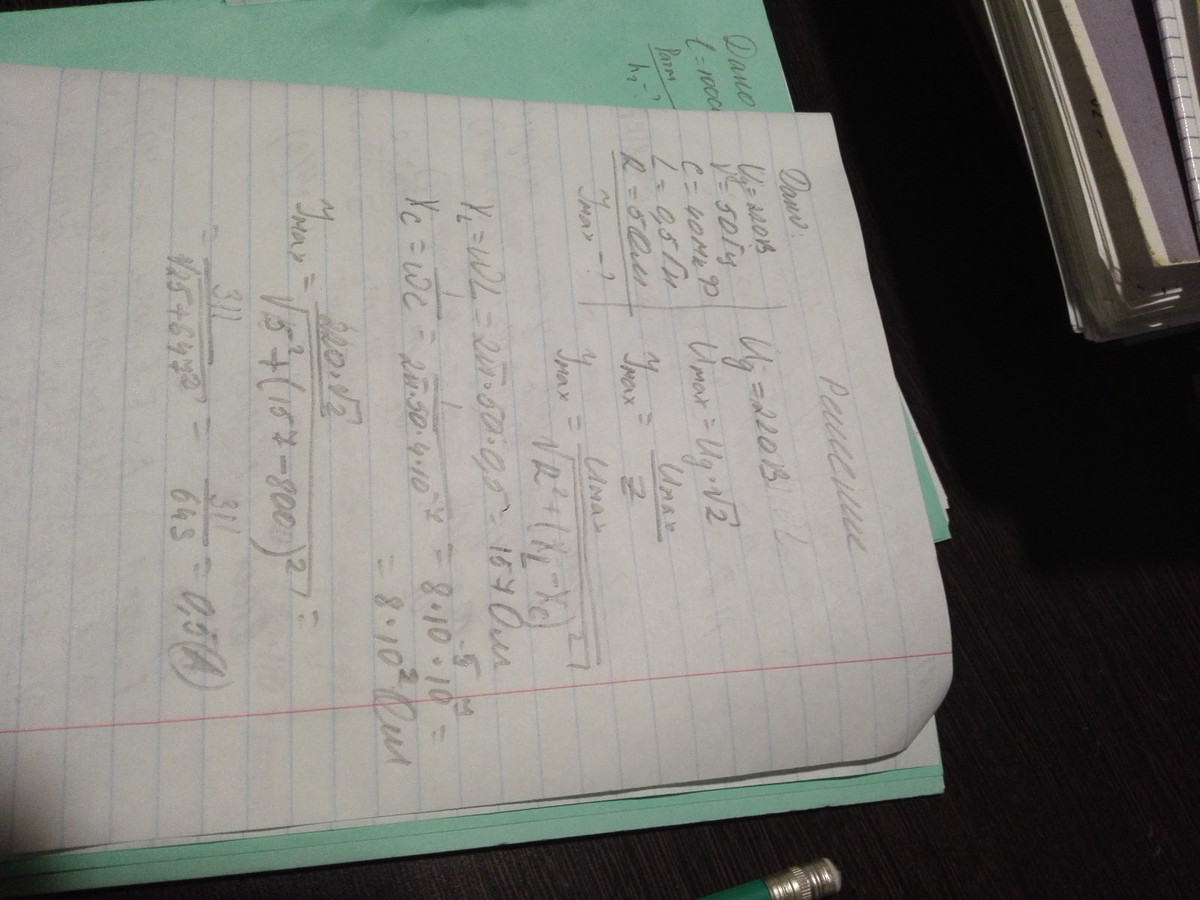 Дано
l = 1000
Pатм
h₂ - ?
Решение
Дано:
Uд = 220В
ν = 50 Гц
C = 40 мкФ
L = 0,5 Гн
R = 5 Ом
Jmax - ?
Uд = 220В
Umax = Uд · √2
Jmax = Umax / Z
Jmax = Umax / √R² + (XL - Xc)²
XL = ωL = 2π · 50 · 0,5 = 157 Ом
Xc = 1 / ωC = 1 / 2π · 50 · 4 · 10⁻⁴ = 8 · 10⁻⁵ · 10⁴ =
= 8 · 10² Ом
Jmax = 220 · √2 / √5² + (157 - 800)² =
= 311 / √25 + 643² = 311 / 643 = 0,5 (А)